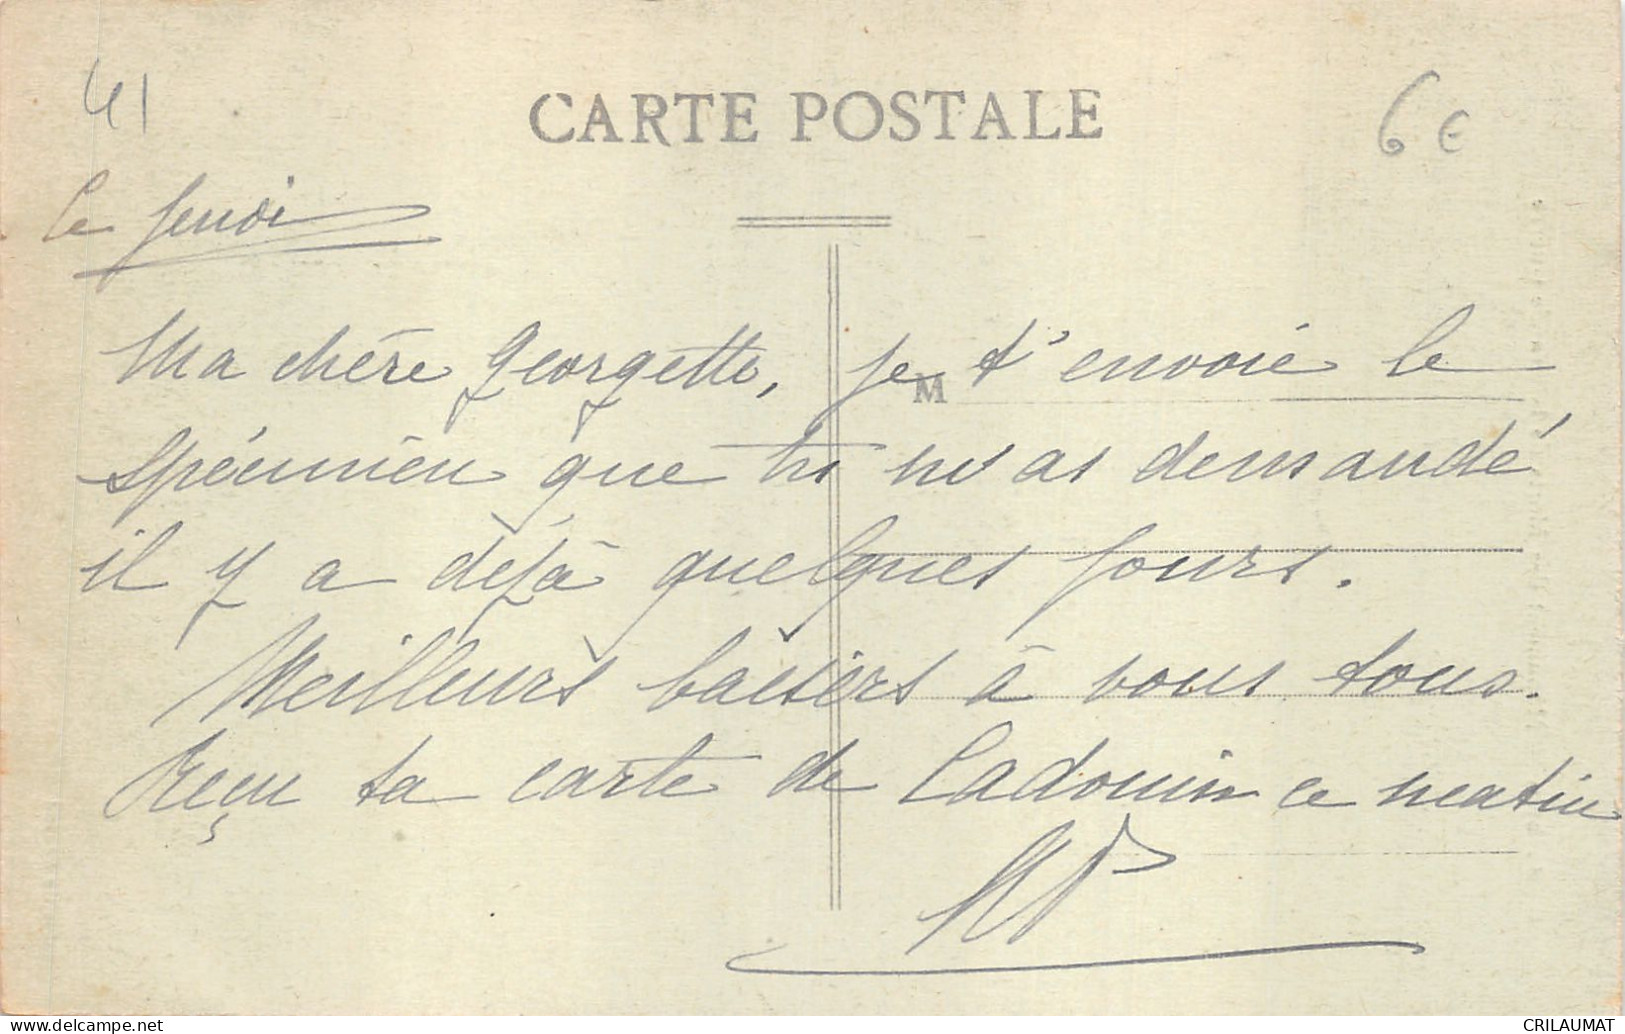 41
CARTE POSTALE
6€
Le Jeudi
Ma chère Georgette, Je t'envoie le
M
spécimen que tu m'as demandé
il y a déjà quelques jours.
Meilleurs baisers à vous tous.
Reçu ta carte de Cadouin ce matin
www.delcampe.net
CRILAUMAT